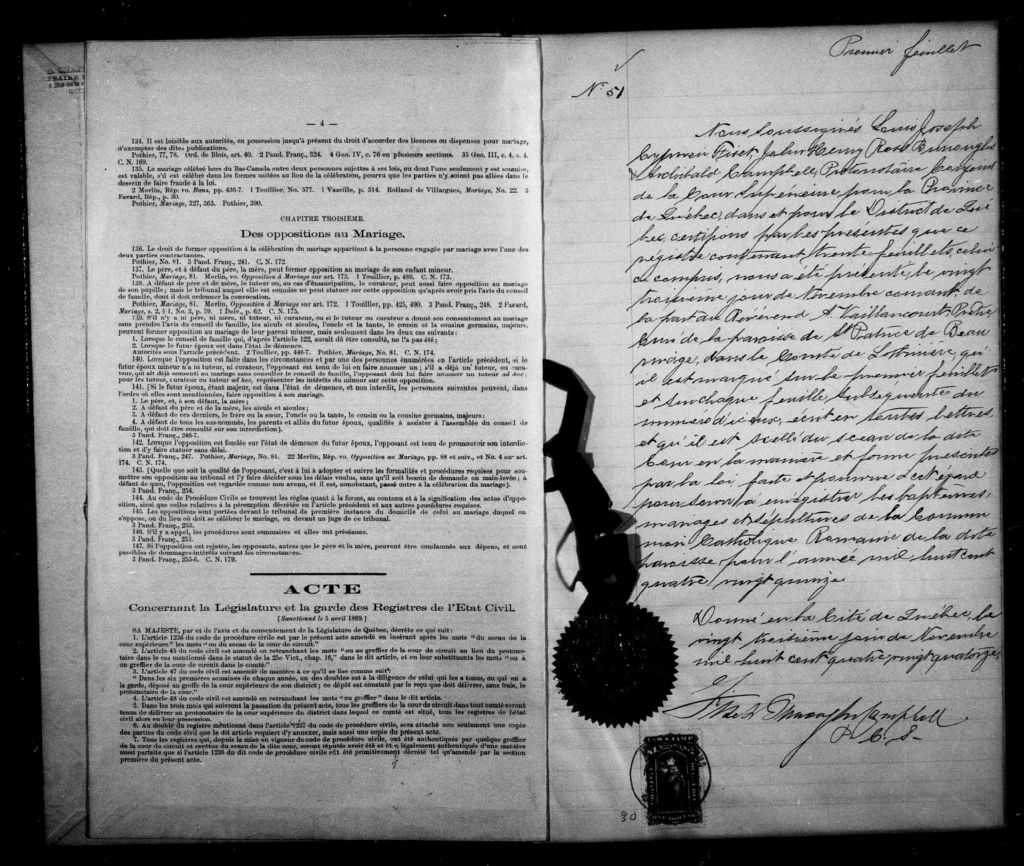 — 4 —
134. Il est loisible aux autorités, en possession jusqu'à présent du droit d'accorder des licences ou dispenses pour mariage,
d'exempter des dites publications.
Pothier, 77, 78. Ord. de Blois, art. 40. 2 Pand. Franç., 324. 4 Geo. IV, c. 76 en plusieurs sections. 35 Geo. III, c. 4. s. 4.
C. N. 169.
135. Le mariage célébré hors du Bas-Canada entre deux personnes sujettes à ses lois, ou dont l'une seulement y est soumise,
est valable, s'il est célébré dans les formes usitées au lieu de la célébration, pourvu que les parties n'y soient pas allées dans le
dessein de faire fraude à la loi.
2 Merlin, Rép. vo. Bans, pp. 436-7. 1 Touillier, No. 577. 1 Vazeille, p. 314. Rolland de Villargues, Mariage, No. 22. 3
Favard, Rép., p. 30.
Pothier, Mariage, 327, 363. Pothier, 390.
CHAPITRE TROISIÈME.
Des oppositions au Mariage.
136. Le droit de former opposition à la célébration du mariage appartient à la personne engagée par mariage avec l'une des
deux parties contractantes.
Pothier, No. 81. 3 Pand. Franç., 241. C. N. 172.
137. Le père, et à défaut du père, la mère, peut former opposition au mariage de son enfant mineur.
Pothier, Mariage, 81. Merlin, vo. Opposition à Mariage sur art. 173. 1 Touillier, p. 489. C. N. 173.
138. A défaut de père et de mère, le tuteur ou, au cas d'émancipation, le curateur, peut aussi faire opposition au mariage
de son pupille; mais le tribunal auquel elle est soumise ne peut statuer sur cette opposition qu'après avoir pris l'avis du conseil
de famille, dont il doit ordonner la convocation.
Pothier, Mariage, 81. Merlin, Opposition à Mariage sur art. 172. 1 Touillier, pp. 425, 490. 3 Pand. Franç., 248. 2 Favard,
Mariage, s. 2, § 1, No. 3, p. 59. 1 Delv., p. 62. C. N. 175.
139. S'il n'y a ni père, ni mère, ni tuteur, ni curateur, ou si le tuteur ou curateur a donné son consentement au mariage
sans prendre l'avis du conseil de famille, les aïeuls et aïeules, l'oncle et la tante, le cousin et la cousine germains, majeurs,
peuvent former opposition au mariage de leur parent mineur, mais seulement dans les deux cas suivants:
1. Lorsque le conseil de famille qui, d'après l'article 122, aurait dû être consulté, ne l'a pas été;
2. Lorsque le futur époux est dans l'état de démence.
Autorités sous l'article précédent. 2 Touillier, pp. 446-7. Pothier, Mariage, No. 81. C. N. 174.
140. Lorsque l'opposition est faite dans les circonstances et par une des personnes énumérées en l'article précédent, si le
futur époux mineur n'a ni tuteur, ni curateur, l'opposant est tenu de lui en faire nommer un; s'il a déjà un tuteur, ou cura-
teur, qui ait déjà consenti au mariage sans consulter le conseil de famille, l'opposant doit lui faire nommer un tuteur ad hoc;
pour les tuteur, curateur ou tuteur ad hoc, représenter les intérêts du mineur sur cette opposition.
141. [Si le futur époux, étant majeur, est dans l'état de démence, et non interdit, les personnes suivantes peuvent, dans
l'ordre où elles sont mentionnées, faire opposition à son mariage.
1. Le père, et, à son défaut, la mère;
2. A défaut du père et de la mère, les aïeuls et aïeules;
3. A défaut de ces derniers, le frère ou la sœur, l'oncle ou la tante, le cousin ou la cousine germains, majeurs;
4. A défaut de tous les sus-nommés, les parents et alliés du futur époux, qualifiés à assister à l'assemblée du conseil de
famille, qui doit être consulté sur son interdiction].
3 Pand. Franç., 246-7.
142. Lorsque l'opposition est fondée sur l'état de démence du futur époux, l'opposant est tenu de promouvoir son interdic-
tion et d'y faire statuer sans délai.
3 Pand. Franç., 247. Pothier, Mariage, No. 81. 22 Merlin, Rép. vo. Opposition au Mariage, pp. 88 et suiv., et No. 4 sur art.
174. C. N. 174.
143. [Quelle que soit la qualité de l'opposant, c'est à lui à adopter et suivre les formalités et procédures requises pour sou-
mettre son opposition au tribunal et l'y faire décider sous les délais voulus, sans qu'il soit besoin de demande en main-levée; à
défaut de quoi, l'opposition est regardée comme non avenue, et il est, nonobstant, passé outre à la célébration du mariage].
3 Pand. Franç., 254.
144. Au code de Procédure Civile se trouvent les règles quant à la forme, au contenu et à la signification des actes d'oppo-
sition, ainsi que celles relatives à la péremption décrétée en l'article précédent et aux autres procédures requises.
145. Les oppositions sont portées devant le tribunal de première instance du domicile de celui au mariage duquel on
s'oppose, ou du lieu où doit se célébrer le mariage, ou devant un juge de ce tribunal.
3 Pand. Franç., 253.
146. S'il y a appel, les procédures sont sommaires et elles ont préséance.
3 Pand. Franç., 253.
147. Si l'opposition est rejetée, les opposants, autres que le père et la mère, peuvent être condamnés aux dépens, et sont
passibles de dommages-intérêts suivant les circonstances.
3 Pand. Franç., 255-6. C. N. 179.
ACTE
Concernant la Législature et la garde des Registres de l'Etat Civil.
[Sanctionné le 5 avril 1869.]
SA MAJESTE, par et de l'avis et du consentement de la Législature de Québec, décrète ce qui suit:
1. L'article 1236 du code de procédure civile est par le présent acte amendé en insérant après les mots "du sceau de la
cour supérieure" les mots "ou du sceau de la cour de circuit."
2. L'article 45 du code civil est amendé en retranchant les mots "ou au greffier de la cour de circuit au lieu du protono-
taire dans le cas mentionné dans le statut de la 25e Vict., chap. 16," dans le dit article, et en leur substituant les mots "ou à
un greffier de la cour de circuit dans le comté."
3. L'article 47 du code civil est amendé de manière à ce qu'il se lise comme suit:
"Dans les six premières semaines de chaque année, un des doubles est à la diligence de celui qui les a tenus, ou qui en a
la garde, déposé au greffe de la cour supérieure de son district; ce dépôt est constaté par le reçu que doit délivrer, sans frais, le
protonotaire de la cour."
4. L'article 48 du code civil est amendé en retranchant les mots "ou greffier" dans le dit article.
5. Dans les trois mois qui suivront la passation du présent acte, tous les greffiers de la cour de circuit dans tout comté seront
tenus de délivrer au protonotaire de la cour supérieure du district dans lequel ce comté est situé, tous les registres de l'état
civil alors en leur possession.
6. Au double du registre mentionné dans l'article 1237 du code de procédure civile, sera attaché non seulement une copie
des parties du code civil que le dit article requiert d'y annexer, mais aussi une copie du présent acte.
7. Tous les registres qui, depuis la mise en vigueur du code de procédure civile, ont été authentiqués par quelque greffier
de la cour de circuit et revêtus du sceau de la dite cour, seront réputés avoir été et être légalement authentiqués d'une manière
aussi parfaite que si l'article 1236 du dit code de procédure civile eût été primitivement décrété tel qu'amendé par la section
première du présent acte.
Premier feuillet
No 51
Nous soussignés Louis Joseph
Cyprien Fiset, John Henry Ross Burroughs
Archibald Campbell, Protonotaire Conjoint
de la Cour Supérieure pour la Province
de Québec, dans et pour le District de Qué
bec, certifions par les présentes que ce
registre contenant trente feuillets, celui
ci compris, nous a été présenté, le vingt
troisième jour de Novembre courant, de
la part du Reverend A. Vaillancourt Prêtre
Curé de la paroisse de St Patrice de Beau
rivage, dans le Comté de Lotbinière, qu'
il est marqué sur le premier feuillet
et sur chaque feuillet subséquents du
numéro d'icieux, écrit en toutes lettres
et qu'il est scellé du sceau de la dite
Cour en la manière et forme présentes
par la loi, faite et pourvue à cet égard
pour servir à enregistrer les baptêmes
mariages et sépultures de la Commu
nion Catholique Romaine de la dite
paroisse pour l'année mil huit cent
quatre vingt quinze.
Donné en la Cité de Québec, le
vingt troisième jour de Novembre
mil huit cent quatre vingt quatorze
Fiset Burroughs Campbell
P. C. S.
30